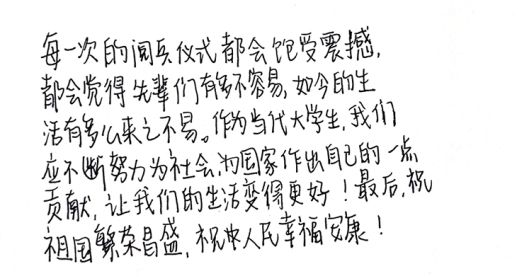 每一次的阅兵仪式都会饱受震撼,
都会觉得先辈们有多不容易,如今的生
活有多么来之不易。作为当代大学生,我们
应不断努力为社会,为国家作出自己的一点
贡献,让我们的生活变得更好！最后,祝
祖国繁荣昌盛,祝中人民幸福安康！